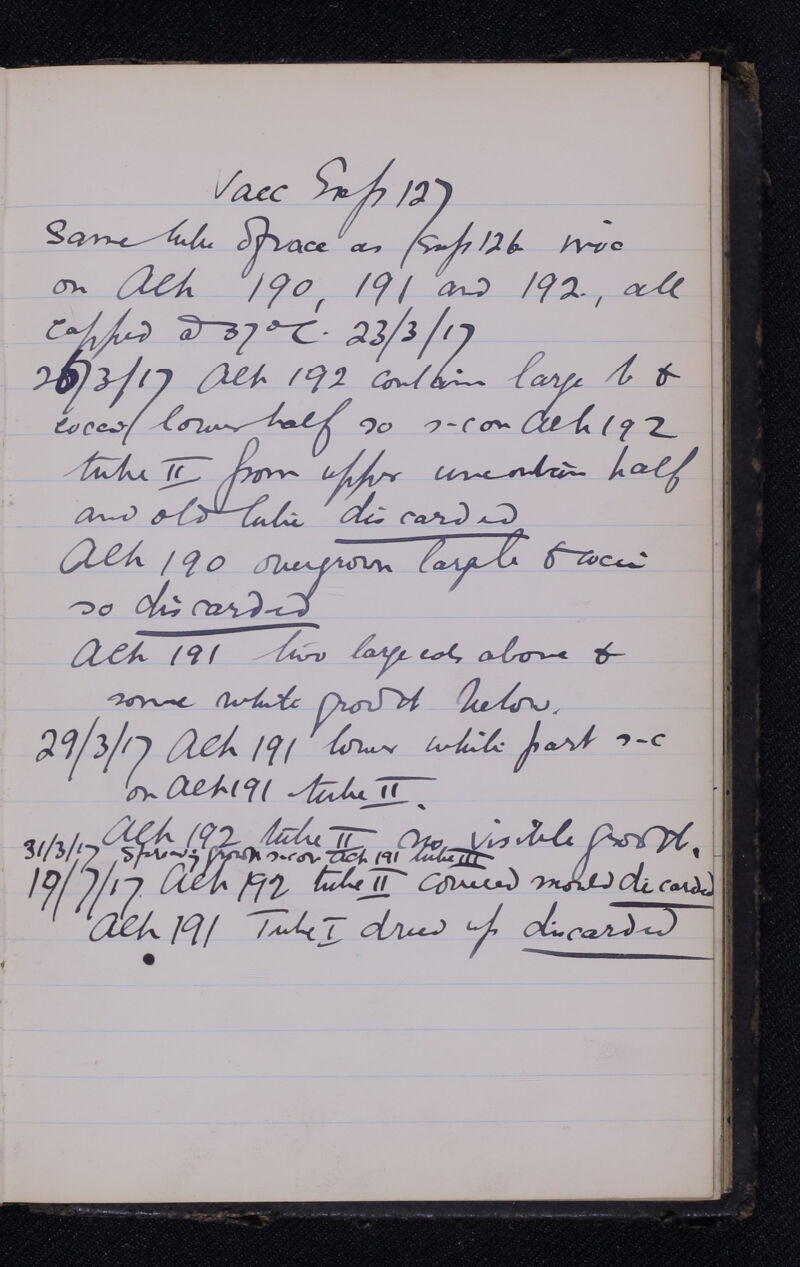 Vacc Exp 127
Same tube of race as Exp 126 inoc
on Alk 190, 191 and 192, all
capped @ 37°C. 23/3/17
26/3/17 Alk 192 contain large b &
cocci lower half so s-c on Alk 192
tube II from upper uncontam half
and old tube discarded
Alk 190 overgrown large b & cocci
so discarded
Alk 191 two large cols above &
some white growth below.
29/3/17 Alk 191 lower white part s-c
on Alk 191 tube II.
Alk 192 tube II no visible growth.
31/3/17 growth s-c on Alk 191 tube III
19/7/17 Alk 192 tube II covered mould discarded
Alk 191 Tube I dried up discarded